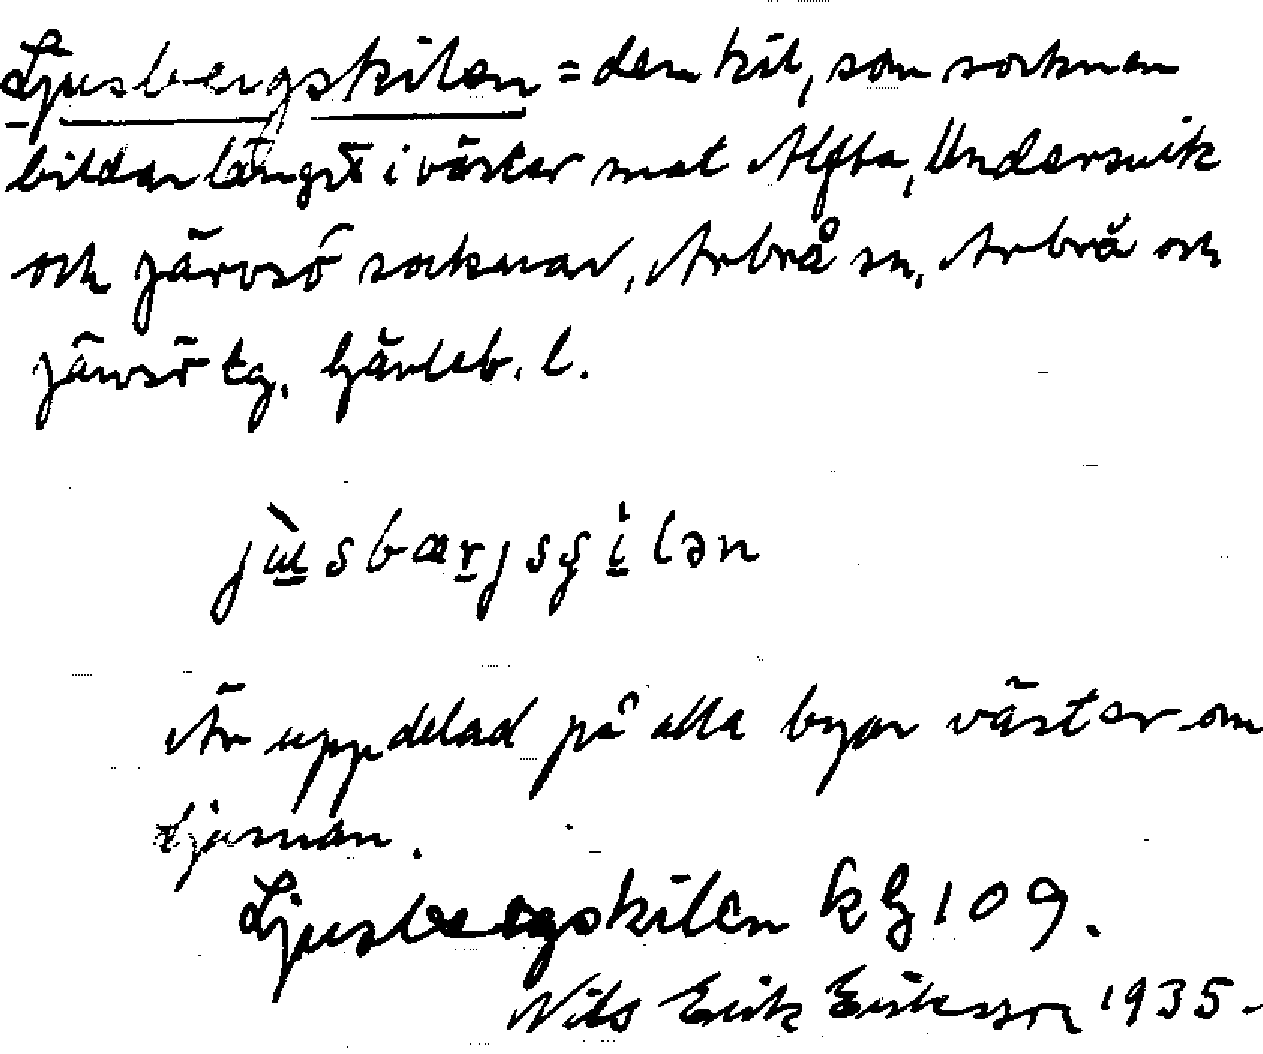 Ljusbergskilen = den kil, som socknen
bildar längst i väster mot Alfta, Undersvik
och Järvsö socknar, Arbrå sn, Arbrå och
Järvsö tg, Gävleb. l.
Är uppdelad på alla byar väster om
Ljusnan.
Ljusbergskilen k G 109.
Nils Erik Eriksson 1935.